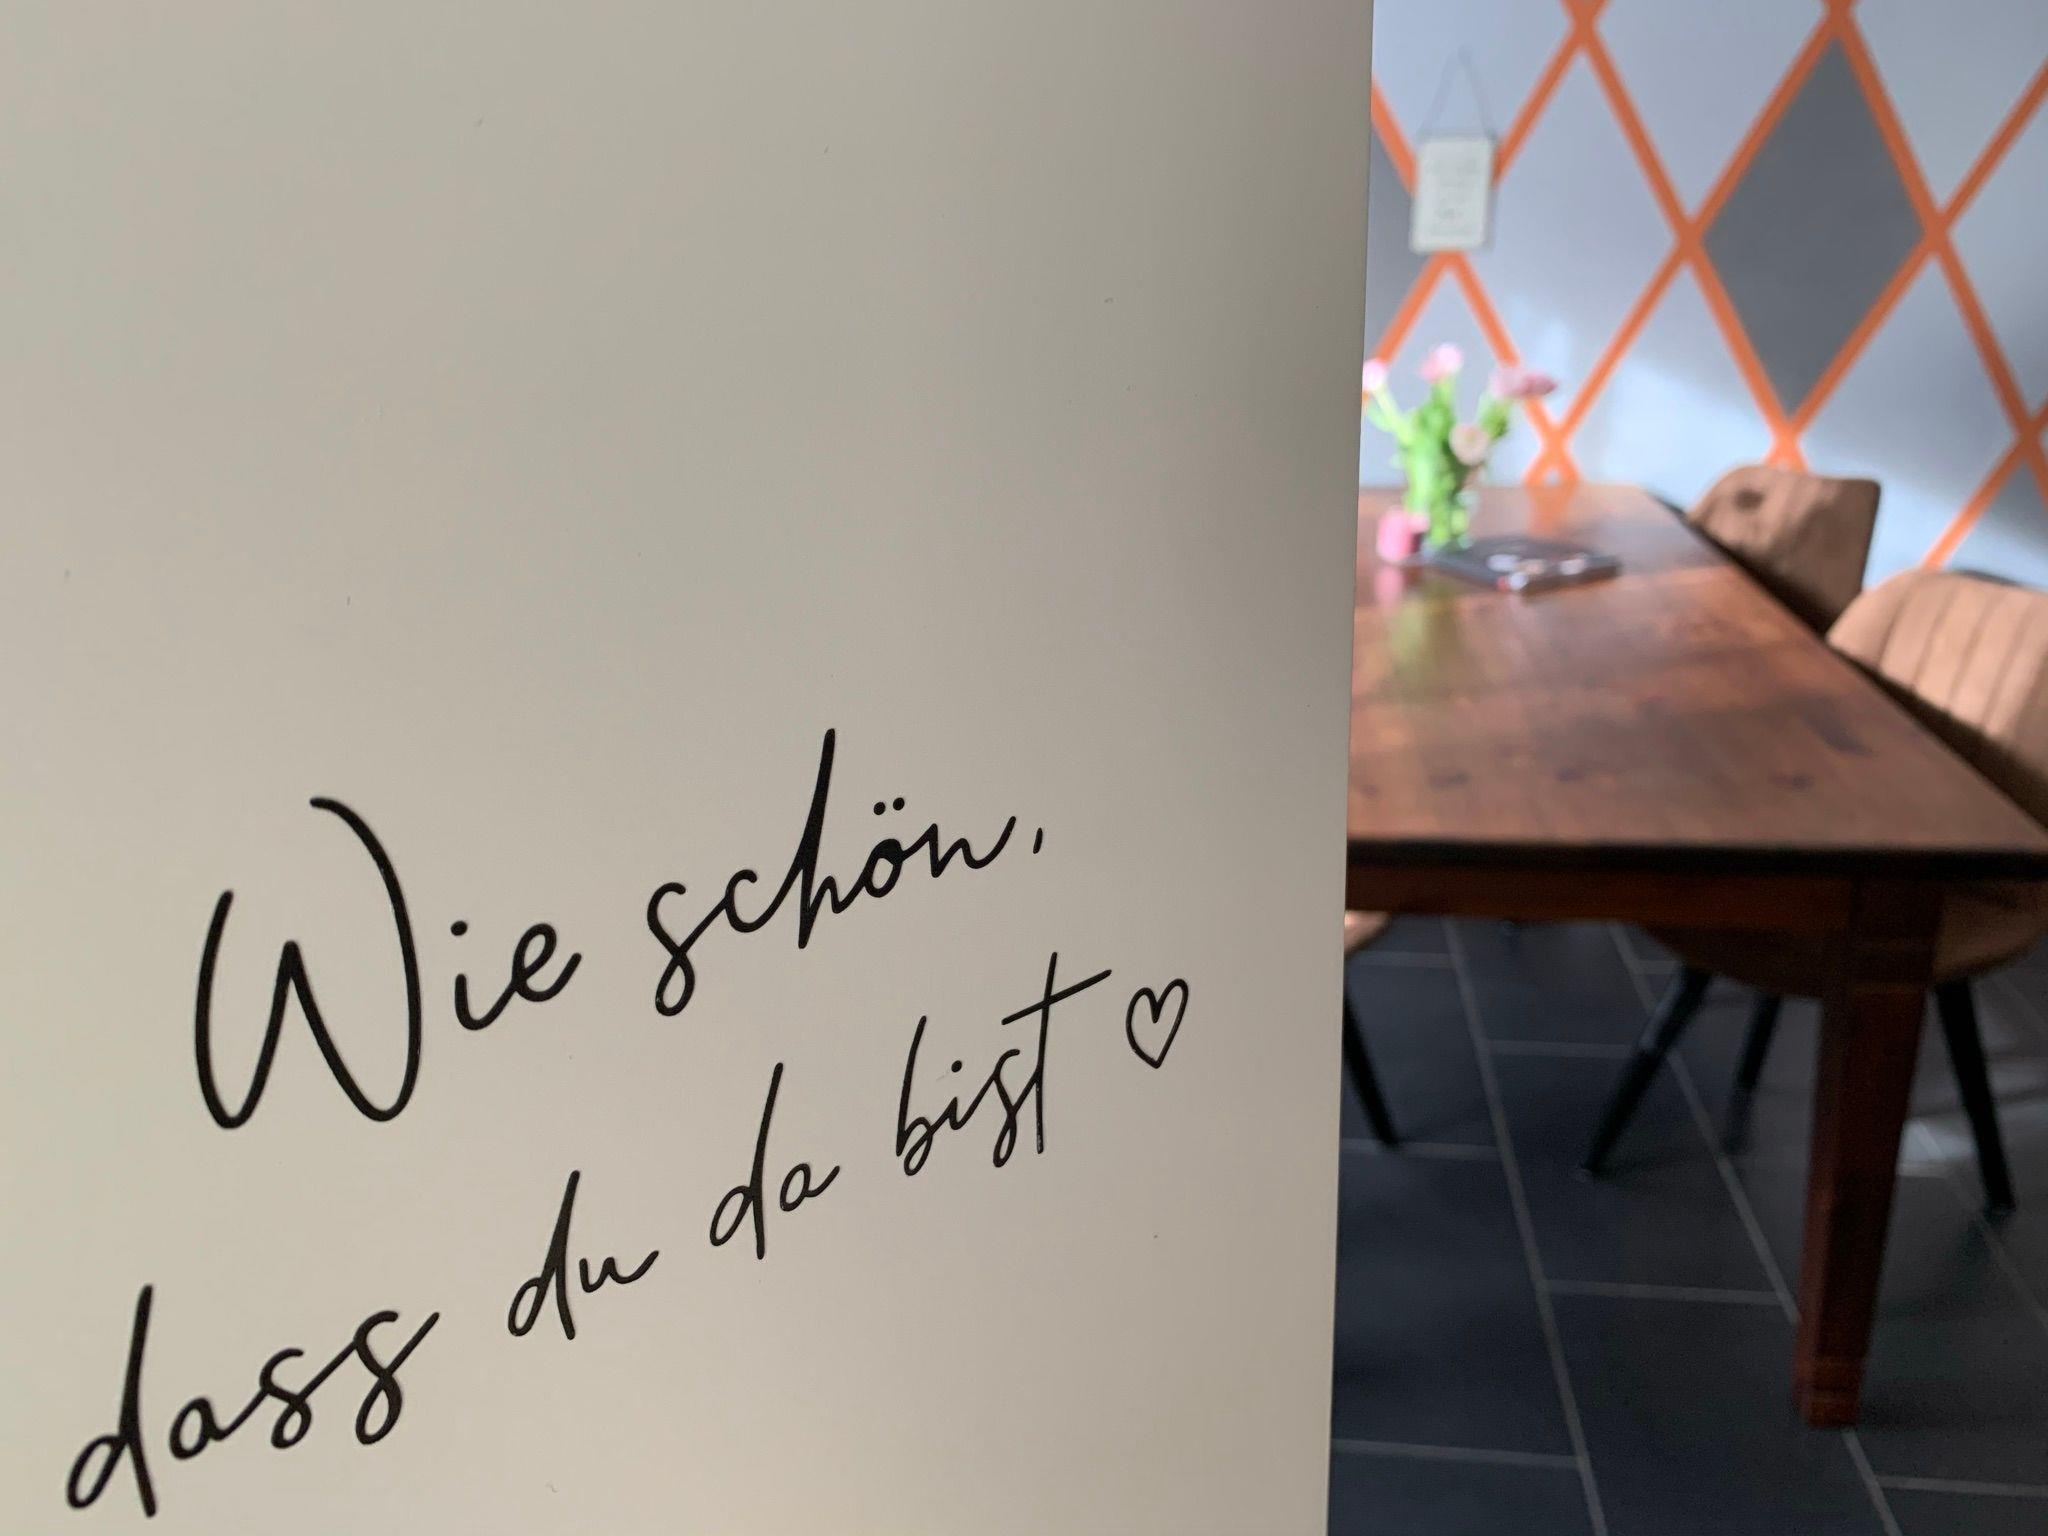 Wie schön,
dass du da bist ♡